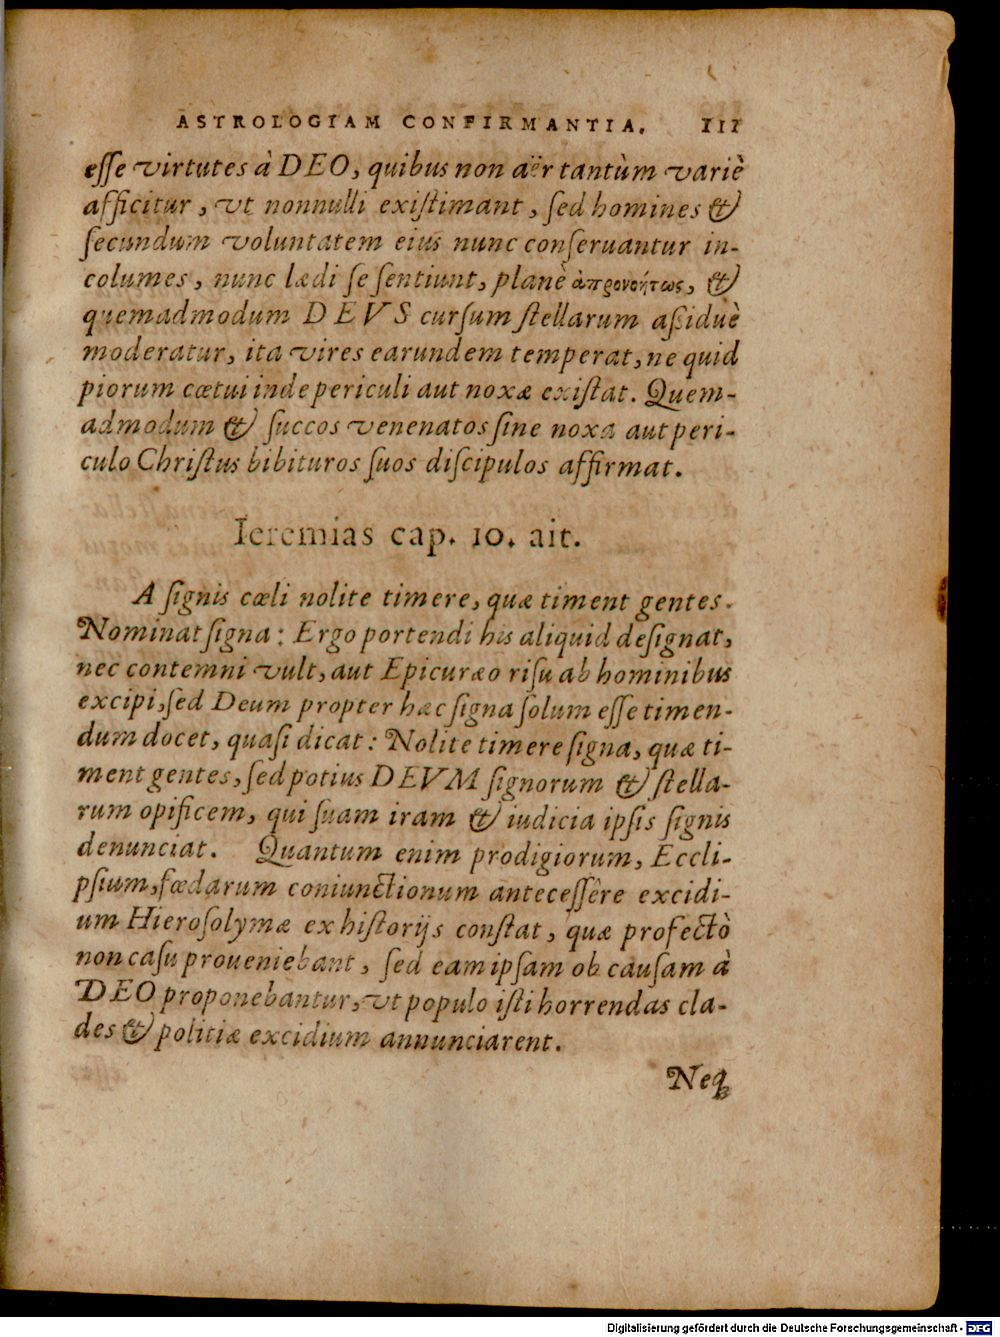 ASTROLOGIAM CONFIRMANTIA. 111
eſſe virtutes à DEO, quibus non aër tantùm variè
afficitur, vt nonnulli exiſtimant, ſed homines &
ſecundum voluntatem eius nunc conſeruantur in-
columes, nunc lædi ſe ſentiunt, planè ἀπρονοήτως, &
quemadmodum DEVS curſum ſtellarum aßiduè
moderatur, ita vires earundem temperat, ne quid
piorum cœtui inde periculi aut noxæ exiſtat. Quem-
admodum & ſuccos venenatos ſine noxa aut peri-
culo Chriſtus bibituros ſuos diſcipulos affirmat.
Ieremias cap. 10. ait.
A ſignis cœli nolite timere, quæ timent gentes.
Nominat ſigna: Ergo portendi his aliquid deſignat,
nec contemni vult, aut Epicuræo riſu ab hominibus
excipi, ſed Deum propter hæc ſigna ſolum eſſe timen-
dum docet, quaſi dicat: Nolite timere ſigna, quæ ti-
ment gentes, ſed potius DEVM ſignorum & ſtella-
rum opificem, qui ſuam iram & iudicia ipſis ſignis
denunciat. Quantum enim prodigiorum, Eccli-
pſium, fœdarum coniunctionum anteceſſêre excidi-
um Hieroſolymæ ex hiſtorijs conſtat, quæ profectò
non caſu proueniebant, ſed eam ipſam ob cauſam à
DEO proponebantur, vt populo iſti horrendas cla-
des & politiæ excidium annunciarent.
Neq;
Digitalisierung gefördert durch die Deutsche Forschungsgemeinschaft - DFG